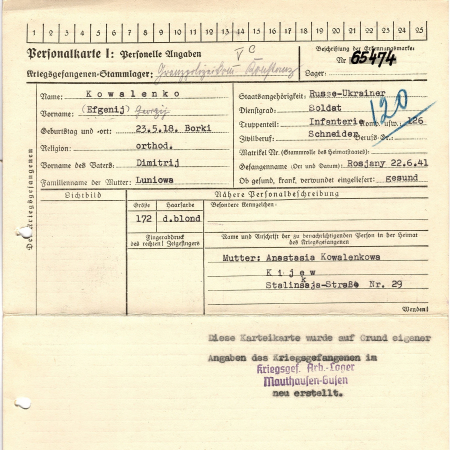 1 2 3 4 5 6 7 8 9 10 11 12 13 14 15 16 17 18 19 20 21 22 23 24 25
Personalkarte I: Personelle Angaben
Beschriftung der Erkennungsmarke:
Nr. 65474
Kriegsgefangenen-Stammlager:
Lager:
Des Kriegsgefangenen
Name: Kowalenko
Vorname: (Efgenij)
Geburtstag und -ort: 23.5.18. Borki
Religion: orthod.
Vorname des Vaters: Dimitrij
Familienname der Mutter: Luniowa
Staatsangehörigkeit: Russe-Ukrainer
Dienstgrad: Soldat
Truppenteil: Infanterie Kom. usw.: 126
Zivilberuf: Schneider Berufs-Gr.:
120
Matrikel Nr. (Stammrolle des Heimatstaates):
Gefangennahme (Ort und Datum): Rosjany 22.6.41
Ob gesund, krank, verwundet eingeliefert: gesund
Lichtbild
Nähere Personalbeschreibung
Größe Haarfarbe Besondere Kennzeichen:
172 d.blond
Fingerabdruck
des rechten! Zeigefingers
Name und Anschrift der zu benachrichtigenden Person in der Heimat
des Kriegsgefangenen
Mutter: Anastasia Kowalenkowa
Kijew
Stalinskaja-Straße Nr. 29
Wenden!
Diese Karteikarte wurde auf Grund eigener
Angaben des Kriegsgefangenen im
Kriegsgef. Arb.-Lager
Mauthausen-Gusen
neu erstellt.